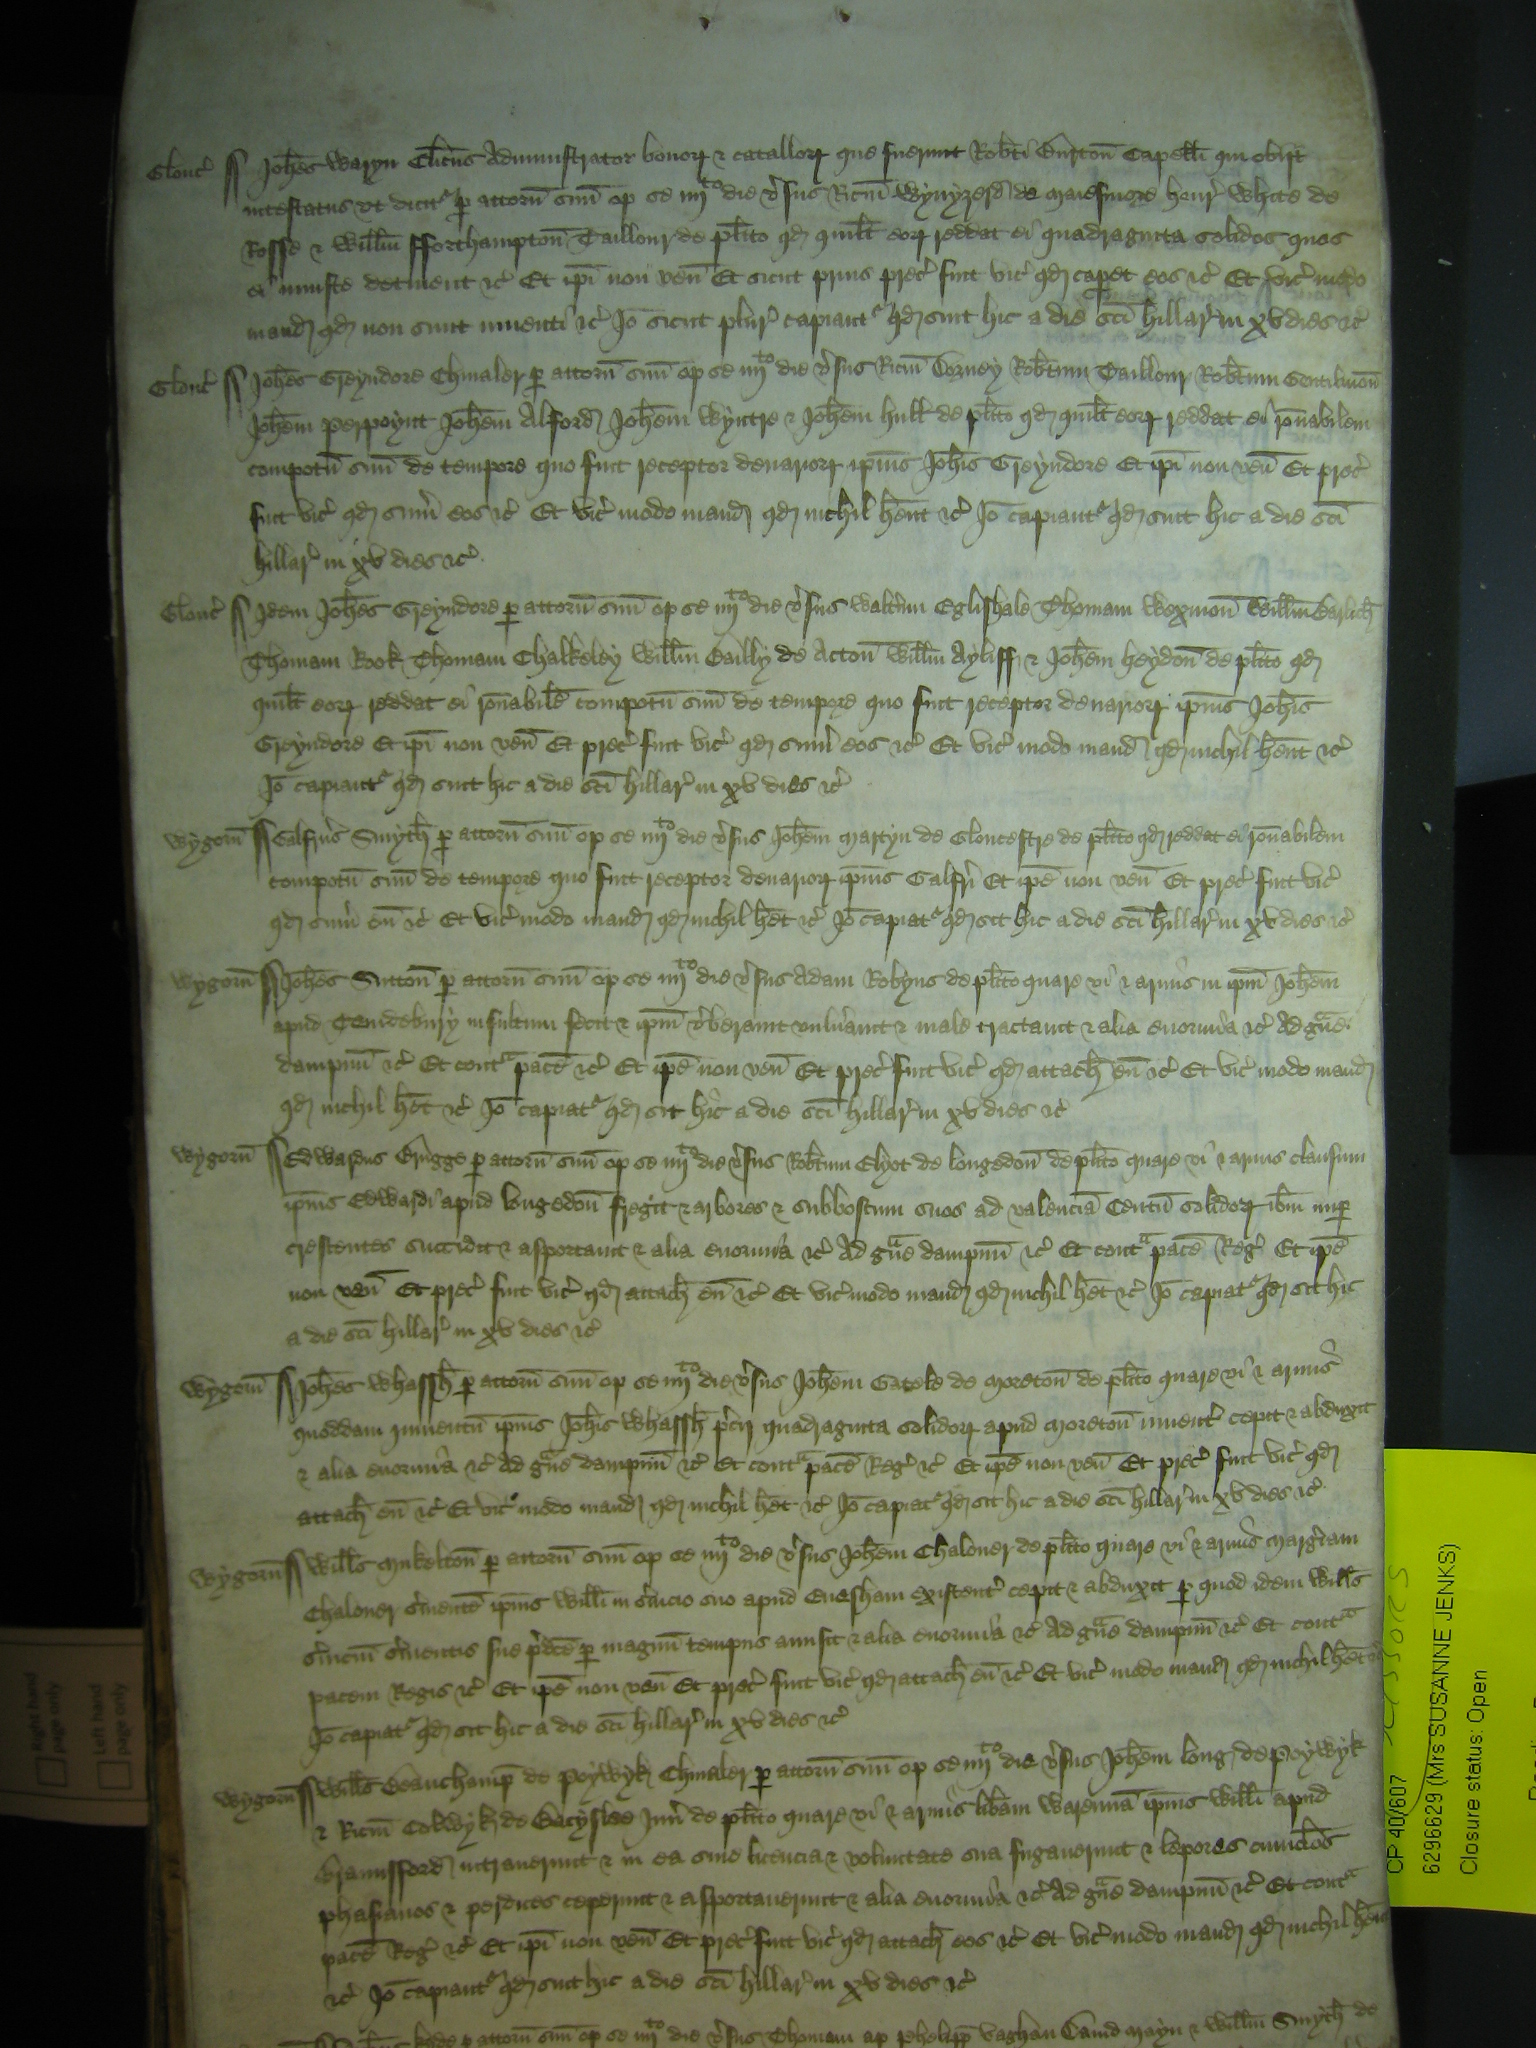 Glouc' Joh̄es Waryn Cl̄icus Administrator bonoꝝ & catalloꝝ que fuerunt Rob̄ti Burton̄ Capell̄i qui obijt
intestatus ut dicit' ꝑ attorn̄ suū op se iiijto die v'sus Ric̄m de Maresmore Henr' White de
Rosse & Will̄m fforthampton̄ Taillour de pl̄ito qd quil̄t eoꝝ reddat ei quadraginta solidos quos
ei iniuste detinent &c' Et ip̄i non ven̄ Et sicut prius prec' fuit vic' qd caperet eos &c' Et vic' modo
mand' qd non sunt inuenti &c' Io sicut plur' capiant' qd sint hic a die sc̄i Hillar' in xv dies &c'
Glouc' Joh̄es Greyndore Chiualer ꝑ attorn̄ suū op se iiijto die v'sus Ric̄m Rob̄tum Taillour Rob̄tum Gentilmon̄
Joh̄em Perpoynt Joh̄em Alford Joh̄em Wyntre & Joh̄em Hull de pl̄ito qd quil̄t eoꝝ reddat ei ron̄abilem
compotū suū de tempore quo fuit receptor denarioꝝ ip̄ius Joh̄is Greyndore Et ip̄i non ven̄ Et prec'
fuit vic' qd sum̄ eos &c' Et vic' modo mand' qd nichil h̄ent &c' Io capiant' qd sint hic a die sc̄i
Hillar' in xv dies &c'
Glouc' Idem Joh̄es Greyndore ꝑ attorn̄ suū op se iiijto die v'sus Walt̄um Eglishale Thomam Wexmon̄ Will̄m
Thomam Rook Thomam Chalkeley Will̄m Bailly de Acton̄ Will̄m Ayliff & Joh̄em Heydon̄ de pl̄ito qd
quil̄t eoꝝ reddat ei ron̄abilē compotū suū de tempore quo fuit receptor denarioꝝ ip̄ius Joh̄is
Greyndore Et ip̄i non ven̄ Et prec' fuit vic' qd sum̄ eos &c' Et vic' modo mand' qd nichil h̄ent &c'
Io capiant' qd sint hic a die sc̄i Hillar' in xv dies &c'
Wygorn̄ Galfr̄us Smyth̄ ꝑ attorn̄ suū op se iiijto die v'sus Joh̄em Martyn de Gloucestre de pl̄ito qd reddat ei ron̄abilem
compotū suū de tempore quo fuit receptor denarioꝝ ip̄ius Galfr̄i Et ip̄e non ven̄ Et prec' fuit vic'
qd sum̄ eū &c' Et vic' modo mand' qd nichil h̄et &c' Io capiat' qd sit hic a die sc̄i Hillar' in xv dies &c'
Wygorn̄ Joh̄es Sutton̄ ꝑ attorn̄ suū op se iiijto die v'sus Adam Robyns de pl̄ito quare vi & armis in ip̄m Joh̄em
apud Temdebury insultum fecit & ip̄m v'berauit vuln̄auit & male tractauit & alia enormia &c' Ad gᵃue
dampnū &c' Et contᵃ pacē &c' Et ip̄e non ven̄ Et prec' fuit vic' qd attach̄ eū &c' Et vic' modo mand'
qd nichil h̄et &c' Io capiat' qd sit hic a die sc̄i Hillar' in xv dies &c'
Wygorn̄ Edwardus Brugge ꝑ attorn̄ suū op se iiijto die v'sus Rob̄tum Elyot de Longedon̄ de pl̄ito quare vi & armis clausum
ip̄ius Edwardi apud Longedon̄ fregit & arbores & subboscum suos ad valenciā Centū solidoꝝ ib̄m nuꝑ
crescentes succidit & asportauit & alia enormia &c' Ad gᵃue dampnū &c' Et contᵃ pacē Reg' Et ip̄e
non ven̄ Et prec' fuit vic' qd attach̄ eū &c' Et vic' modo mand' qd nichil h̄et &c' Io capiat' qd sit hic
a die sc̄i Hillar' in xv dies &c'
Wygorn̄ Joh̄es Whassh̄ ꝑ attorn̄ suū op se iiijto die v'sus Joh̄em Gatole de Moreton̄ de pl̄ito quare vi & armis
quoddam iumentū ip̄ius Joh̄is Whassh̄ p'cij quadraginta solidoꝝ apud Moreton̄ inuent' cepit & abduxit
& alia enormia &c' Ad gᵃue dampnū &c' Et contᵃ pacē Reg' &c' Et ip̄e non ven̄ Et prec' fuit vic' qd
attach̄ eū &c' Et vic' modo mand' qd nichil h̄et &c' Io capiat' qd sit hic a die sc̄i Hillar' in xv dies &c'
Wygorn̄ Will̄s Mukelton̄ ꝑ attorn̄ suū op se iiijto die v'sus Joh̄em Chaloner de pl̄ito quare vi & armis Marḡiam
Chaloner s'uientē ip̄ius Will̄i in s'uicio suo apud Euesham existent' cepit & abduxit ꝑ quod idem Will̄s
s'uiciū s'uientis sue p̄dc̄e ꝑ magnū tempus amisit & alia enormia &c' Ad gᵃue dampnū &c' Et contᵃ
pacem Regis &c' Et ip̄e non ven̄ Et prec' fuit vic' qd attach̄ eū &c' Et vic' modo mand' qd nichil h̄et &c'
Io capiat' qd sit hic a die sc̄i Hillar' in xv dies &c'
Wygorn̄ Will̄s Beauchamp̄ de Poywyk Chiualer ꝑ attorn̄ suū op se iiijto die v'sus Joh̄em Long de Poywyk
& Ric̄m Colwyk de Iun̄ de pl̄ito quare vi & armis lib̄am Warennā ip̄ius Will̄i apud
Braunsford intrauerunt & in ea sine licencia & voluntate sua fugauerunt & lepores cunicl̄os
phasianos & perdices ceperunt & asportauerunt & alia enormia &c' Ad gᵃue dampnū &c' Et contᵃ
pacē Reg' &c' Et ip̄i non ven̄ Et prec' fuit vic' qd attach̄ eos &c' Et vic' modo mand' qd nichil h̄ent
&c' Io capiant' qd sint hic a die sc̄i Hillar' in xv dies &c'
ꝑ attorn̄ suū op se iiijto die v'sus Thomam ap Phelipp Vaghan Dauid Mayn & Will̄m Smyth̄ de
Right hand
page only
Left hand
page only
CP 40/607
6296629 (Mrs SUSANNE JENKS)
Closure status: Open